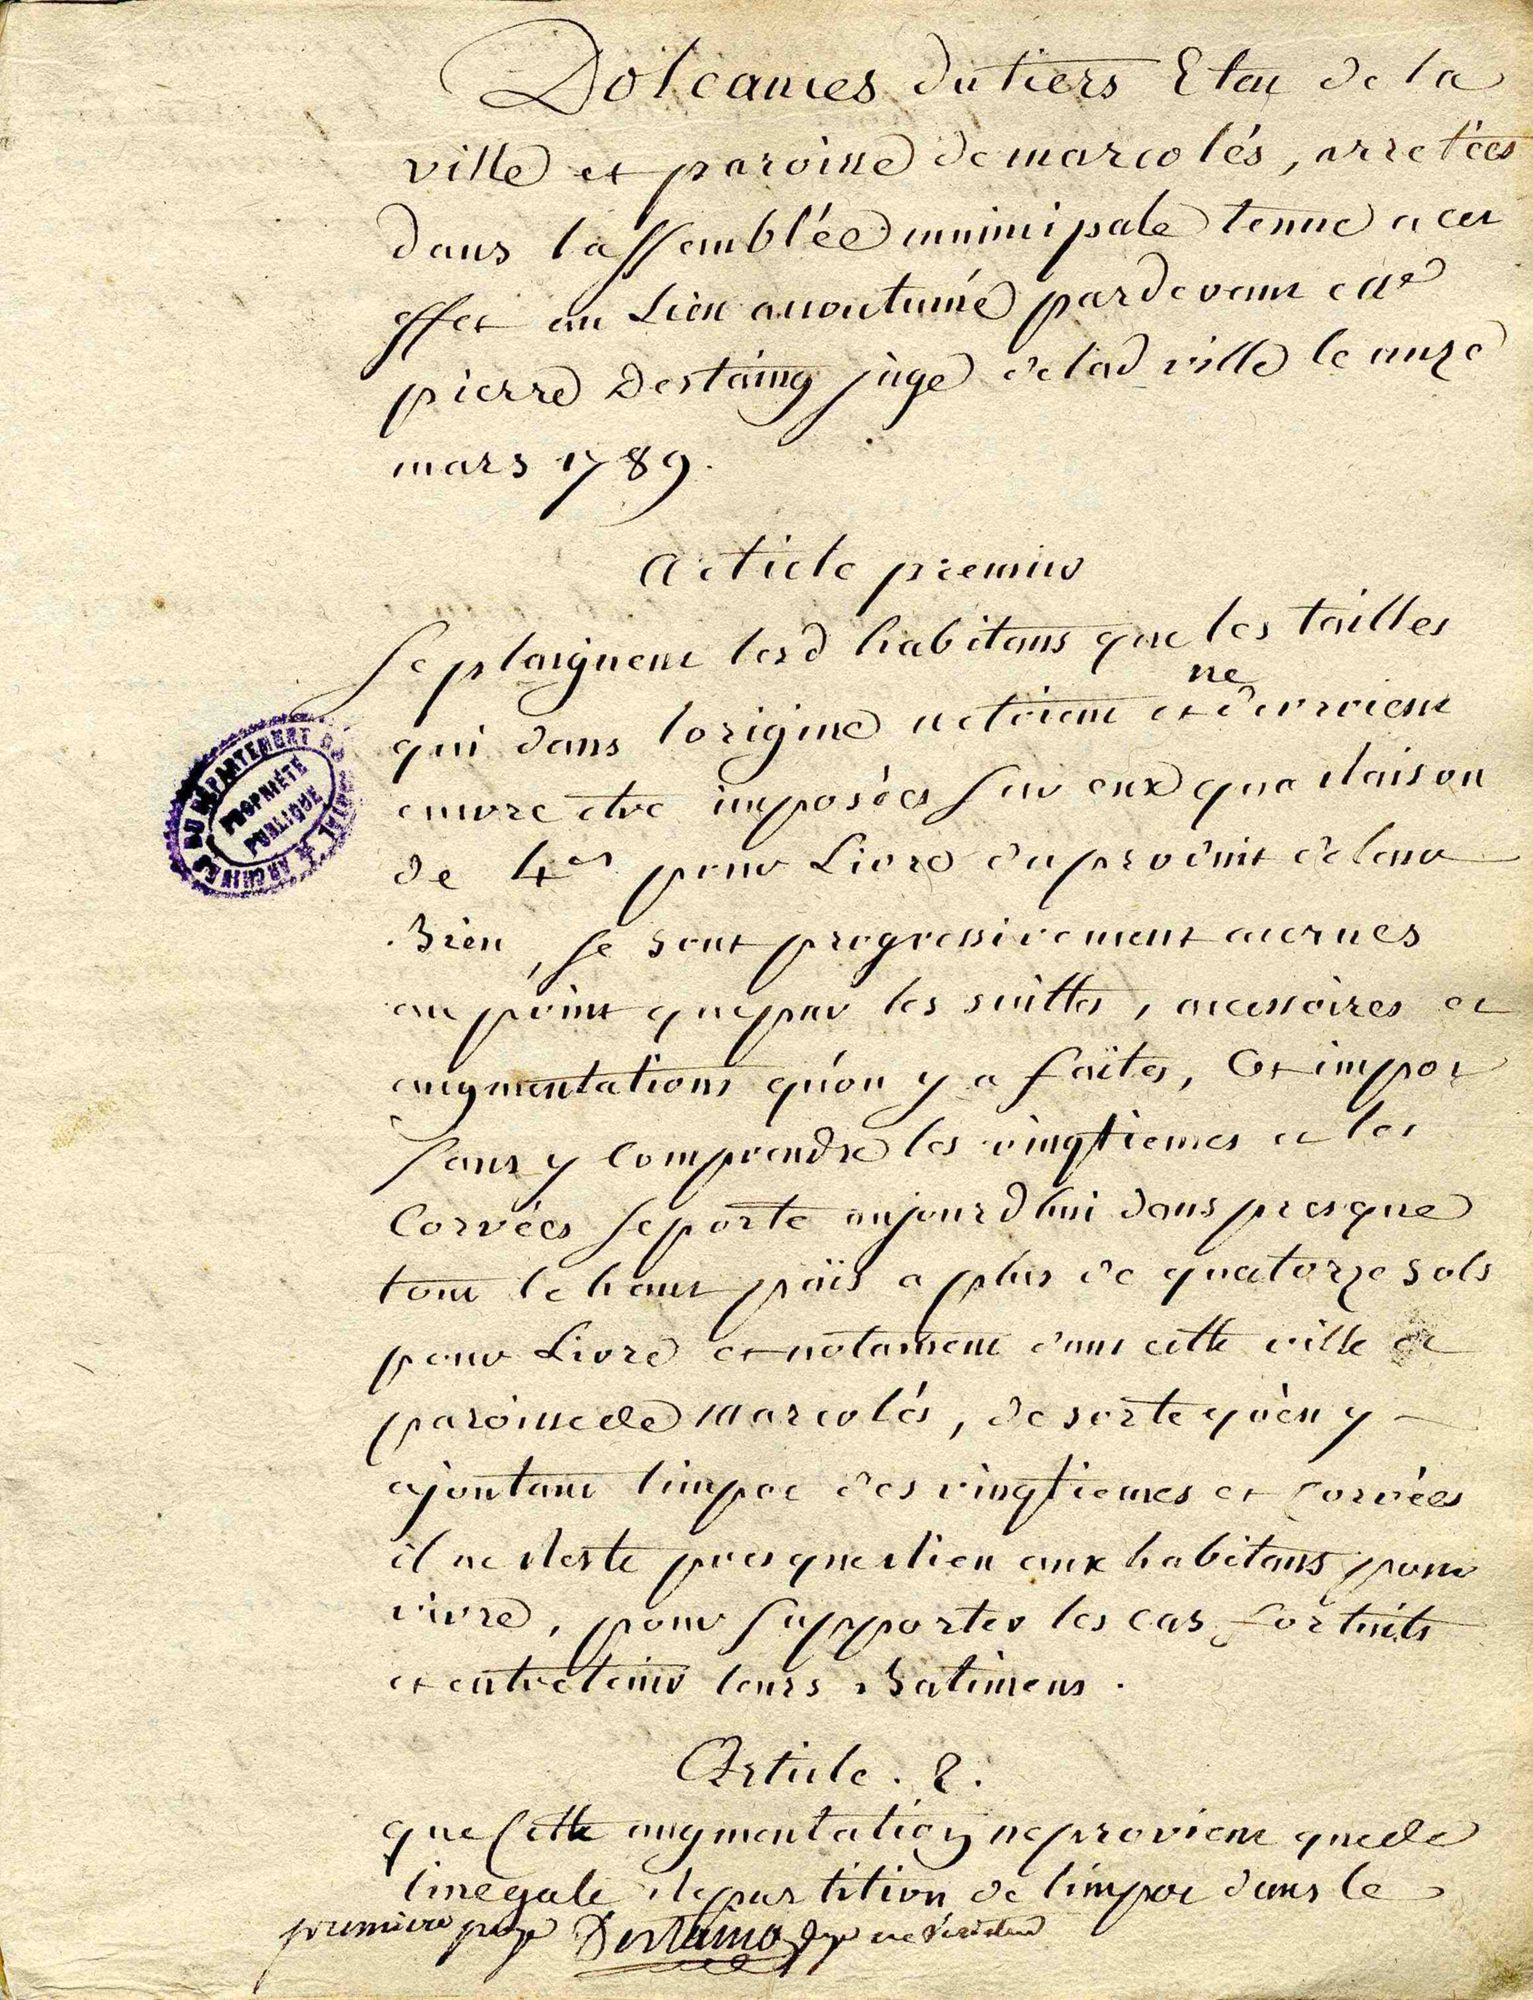 Doleances du tiers Etat de la
ville et paroisse de marcolés, arretées
dans lassemblée municipale tenue a cet
effet au Lieu accoutumé pardevant
pierre Destaing juge de lad ville le onze
mars 1789.
Article premier
se plaignent lesd habitans que les tailles
qui dans lorigine netoient et ne devroient
encore etre imposées sur eux qua raison
de 4s pour Livre du produit de leur
Bien, se sont progressivement accrues
au point que par les suittes, accessoires et
augmentations qu'on y a faites, Cet impot
sans y Comprendre les vingtiemes et les
Corvées se porte aujourdhui dans presque
tout le haut païs a plus de quatorze sols
pour Livre et notament dans cette ville et
paroisse de marcolés, de sorte qu'en y
ajoutant limpot des vingtiemes et Corvées
il ne reste presque rien aux habitans pour
vivre, pour supporter les cas fortuits
et entretenir leurs Batimens.
Article. 2.
que Cette augmentation ne provient que de
linegale repartition de limpot dans le
premiere page Destaing juge
DU DEPARTEMENT DU CANTAL ARCHIVES
PROPRIÉTÉ
PUBLIQUE